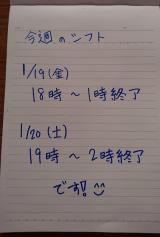 今週のシフト
1/19(金)
18時〜1時終了
1/20(土)
19時〜2時終了
です!